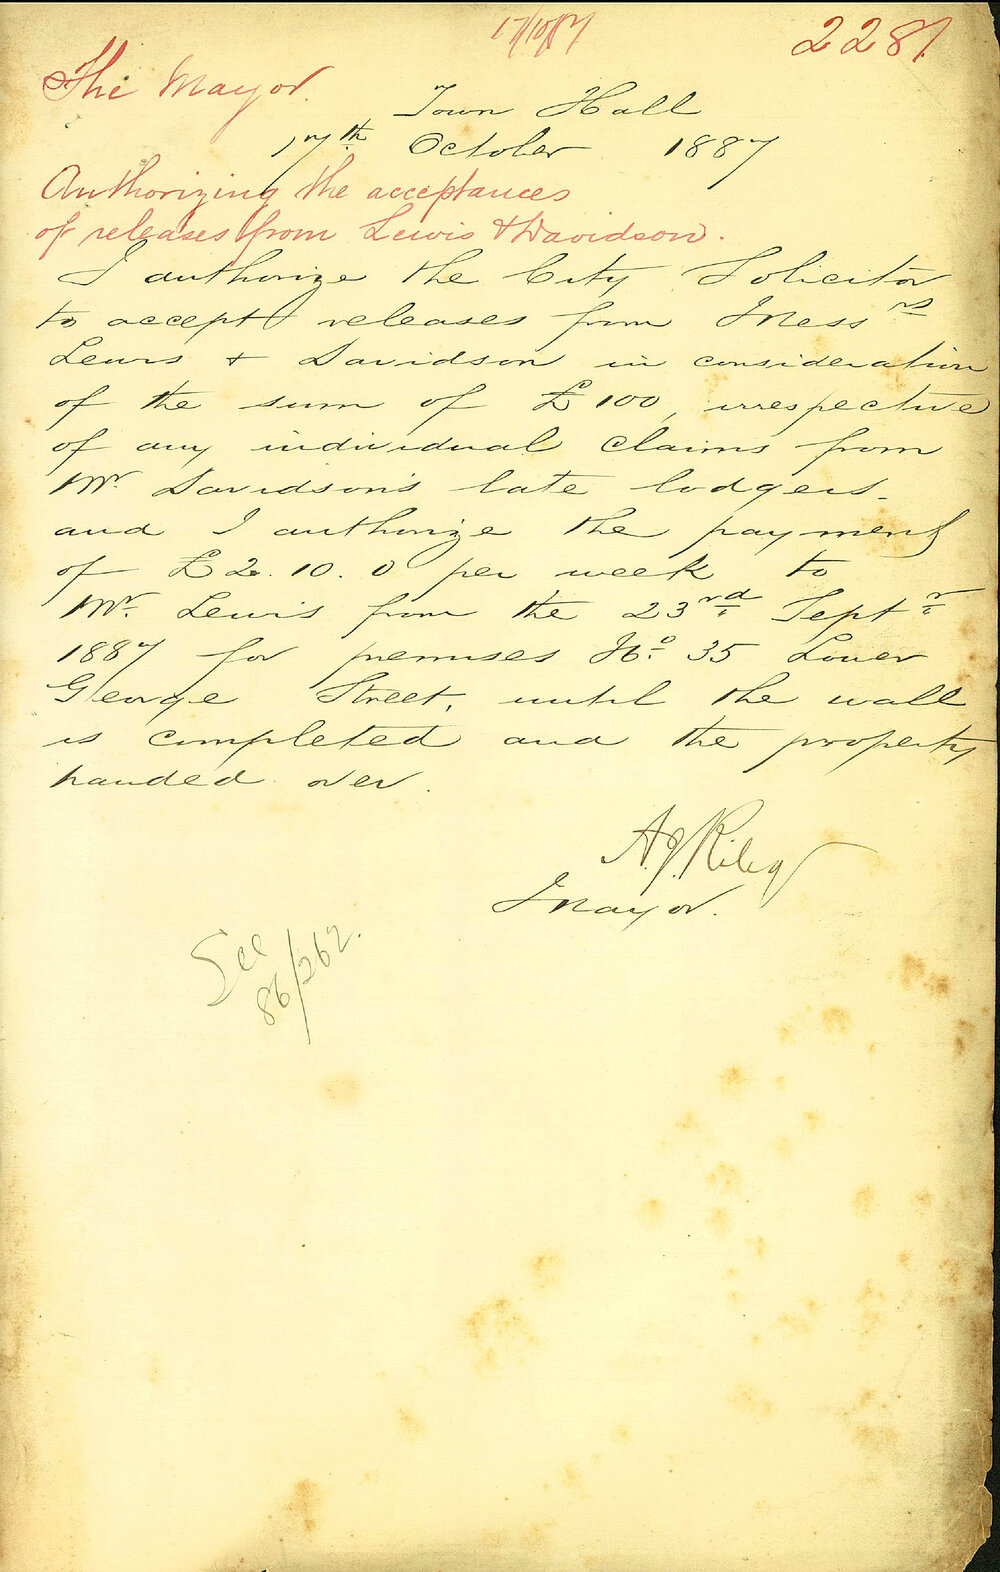 17/10/87
2287
The Mayor.
Town Hall
17th October 1887
Authorizing the acceptances
of releases from Lewis & Davidson.
I authorize the City Solicitor
to accept releases from Messrs
Lewis & Davidson in consideration
of the sum of £100, irrespective
of any individual claims from
Mr. Davidson's late lodgers -
and I authorize the payment
of £2.10.0 per week to
Mr. Lewis from the 23rd Septr
1887 for premises No. 35 Lower
George Street, until the wall
is completed and the property
handed over.
A.J. Riley
Mayor.
See
86/262.